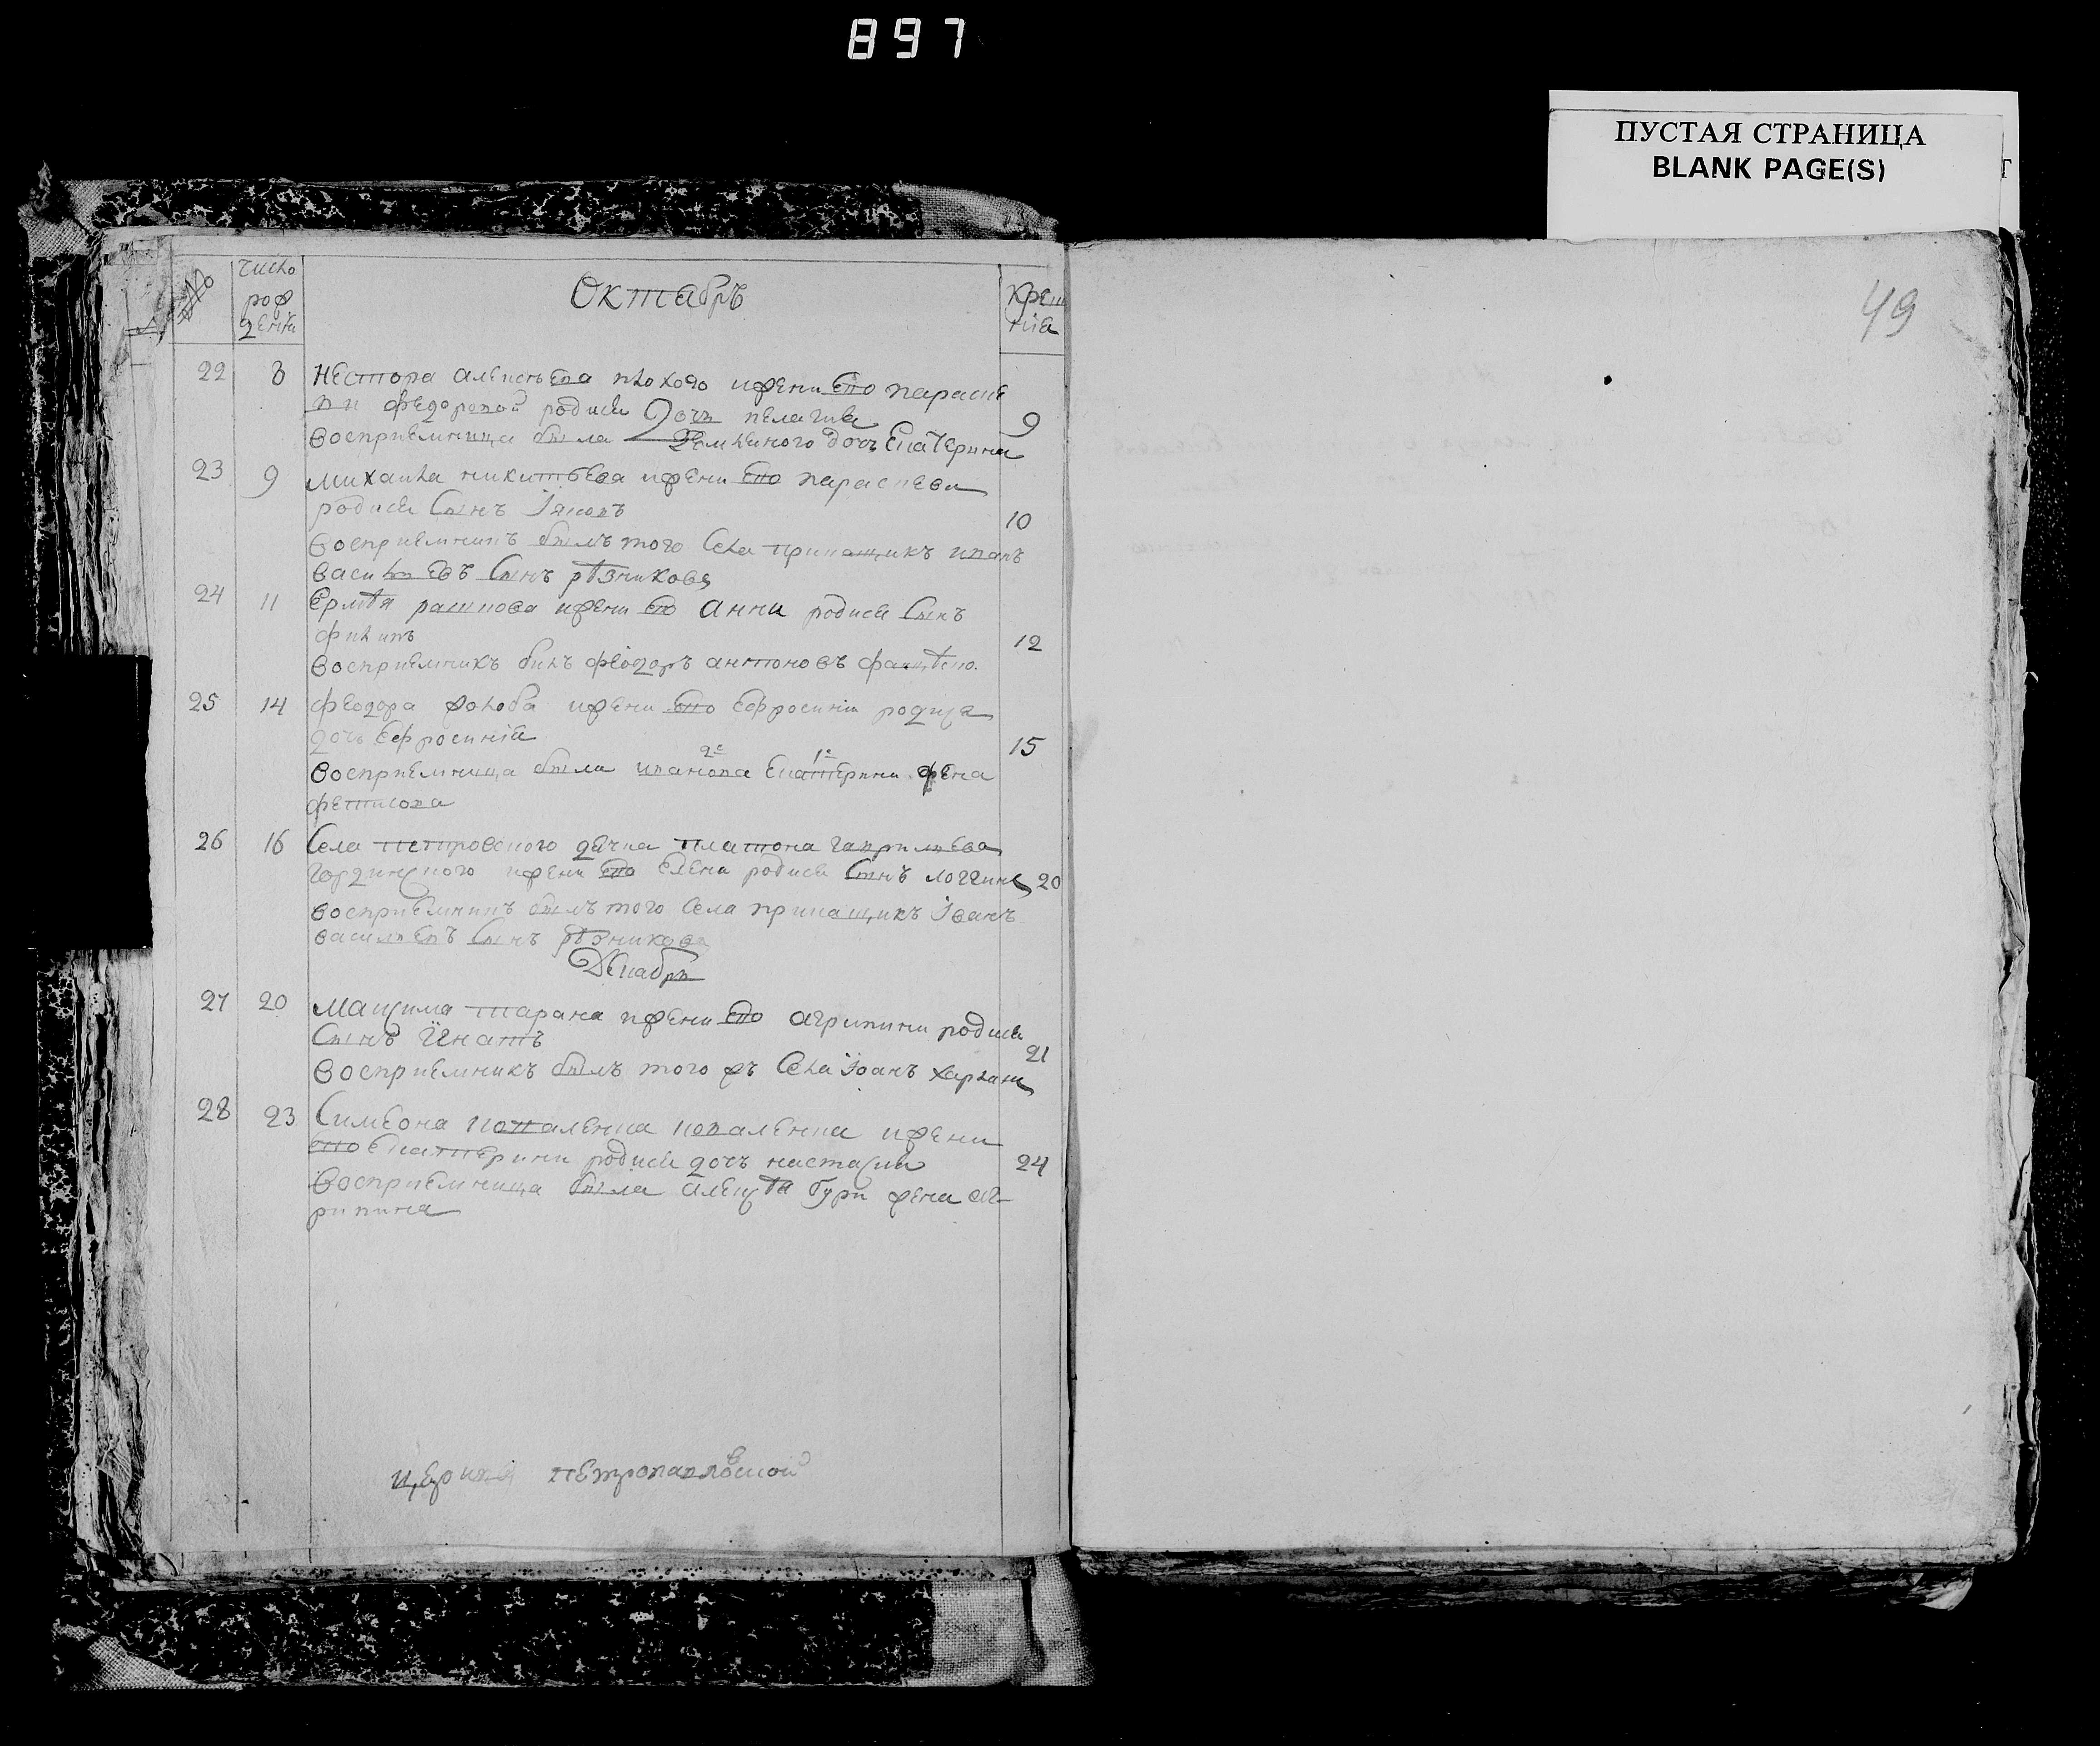 897
ПУСТАЯ СТРАНИЦА
BLANK PAGE(S)
49
№ число рождения Октабръ крещения
22 8 Нестора алексѣева плохого ижени его параске
ви федоровой родися дочь пелагия 9
восприемница была дочь Екатерина
23 9 михаила никитъева ижени его параскеви
родися Сынъ Іяковъ 10
восприемникъ былъ того Села прикащикъ иванъ
васильевъ Сынъ рѣзниковъ
24 11 Ермѣя ижени его анни родися Сынъ
филипъ 12
восприемникъ билъ феодоръ антоновъ
25 14 феодора ижени его Ефросинии родися
дочь Ефросиния 15
восприемница была иванова 2е Екатерина 1е жена
фетисова
26 16 Села петровского дячка платона гаврилъева
ижени его Елени родися Сынъ логгинъ 20
восприемникъ былъ того Села прикащикъ Іванъ
васильевъ Сынъ рѣзниковъ
Декабрь
27 20 Максима тарана ижени его агрипини родися
Сынъ Игнатъ 21
восприемникъ былъ того жъ Села Іоанъ
28 23 Симеона коваленка коваленка ижени
его Екатерини родися дочь настасия 24
восприемница была алексѣя жена аг-
рипина
церкви петропавловской